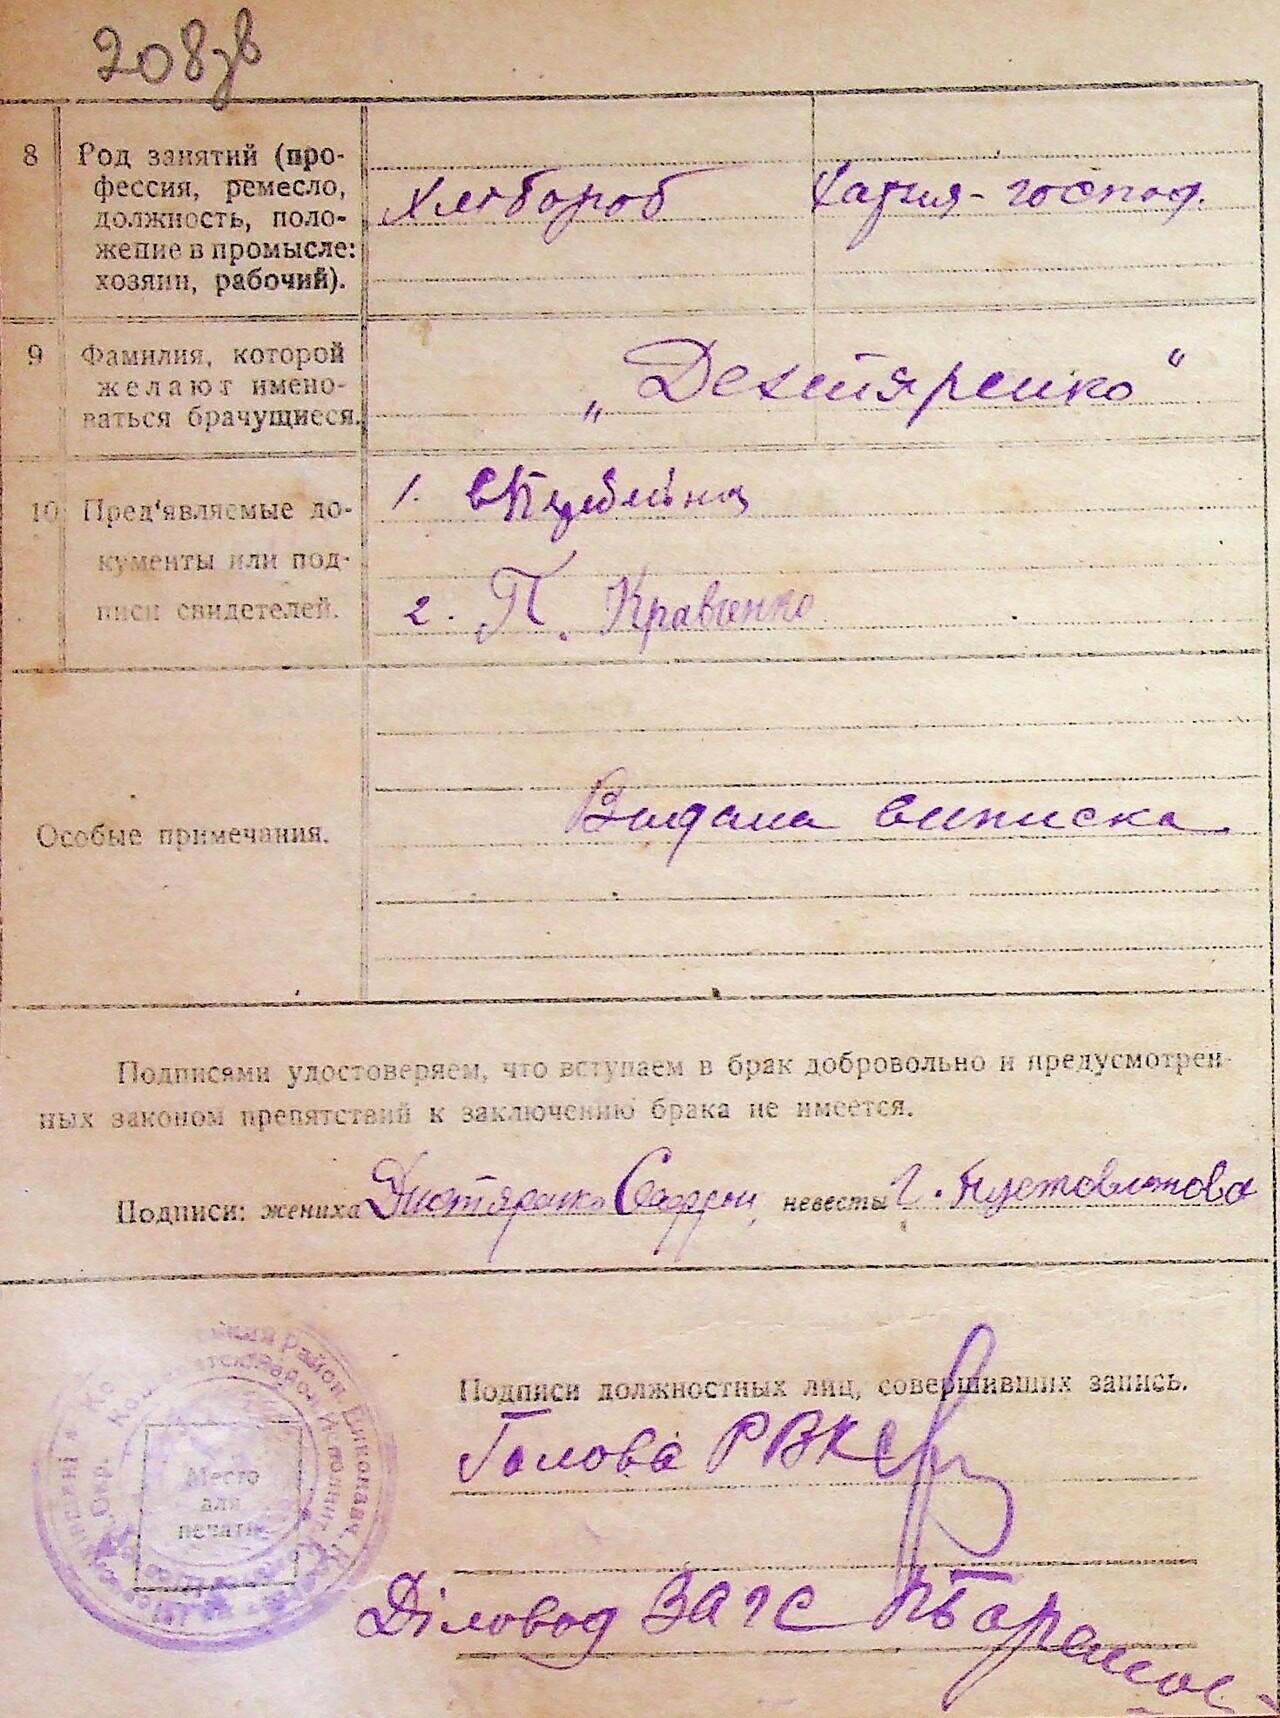 208зв
8 Род занятий (про-
фессия, ремесло,
должность, поло-
жение в промысле:
хозяин, рабочий).
Хлібороб Хатня-господ.
9 Фамилия, которой
желают имено-
ваться брачущиеся.
„Дехтяренко“
10 Пред'являемые до-
кументы или под-
писи свидетелей.
1.
2. П. Кравченко
Особые примечания.
Видана виписка
Подписями удостоверяем, что вступаем в брак добровольно и предусмотрен-
ных законом препятствий к заключению брака не имеется.
Подписи: жениха Дихтяренко невесты Г. Пустовитова
Подписи должностных лиц, совершивших запись.
Голова РВК
Место
для
печати
Діловод ЗАГС